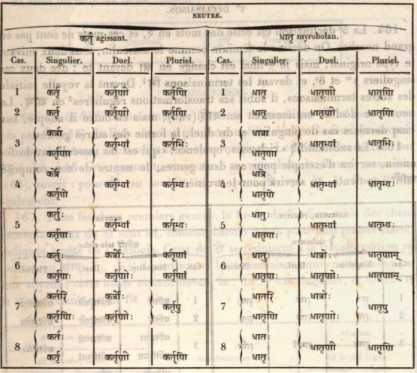 NEUTRE.
कर्तृ agissant. धातृ myrobolan.
Cas. Singulier. Duel. Pluriel. Cas. Singulier. Duel. Pluriel.
1 कर्तृ कर्तृणी कर्तृणि 1 धातृ धातृणी धातृणि
2 कर्तृ कर्तृणी कर्तृणि 2 धातृ धातृणी धातृणि
कर्त्रा धात्रा
3 कर्तृभ्यां कर्तृभिः 3 धातृभ्यां धातृभिः
कर्तृणा धातृणा
कर्त्रे धात्रे
4 कर्तृभ्यां कर्तृभ्यः 4 धातृभ्यां धातृभ्यः
कर्तृणे धातृणे
कर्तुः धातुः
5 कर्तृभ्यां कर्तृभ्यः 5 धातृभ्यां धातृभ्यः
कर्तृणः धातृणः
कर्तुः कर्त्रोः कर्तृणां धातुः धात्रोः धातृणाम्
6 6
कर्तृणः कर्तृणोः कर्तृणां धातृणः धातृणोः धातृणाम्
कर्तरि कर्त्रोः धातरि धात्रोः
7 कर्तृषु 7 धातृषु
कर्तृणि कर्तृणोः धातृणि धातृणोः
कर्तः धातः
8 8
कर्तृ कर्तृणी कर्तृणि धातृ धातृणी धातृणि